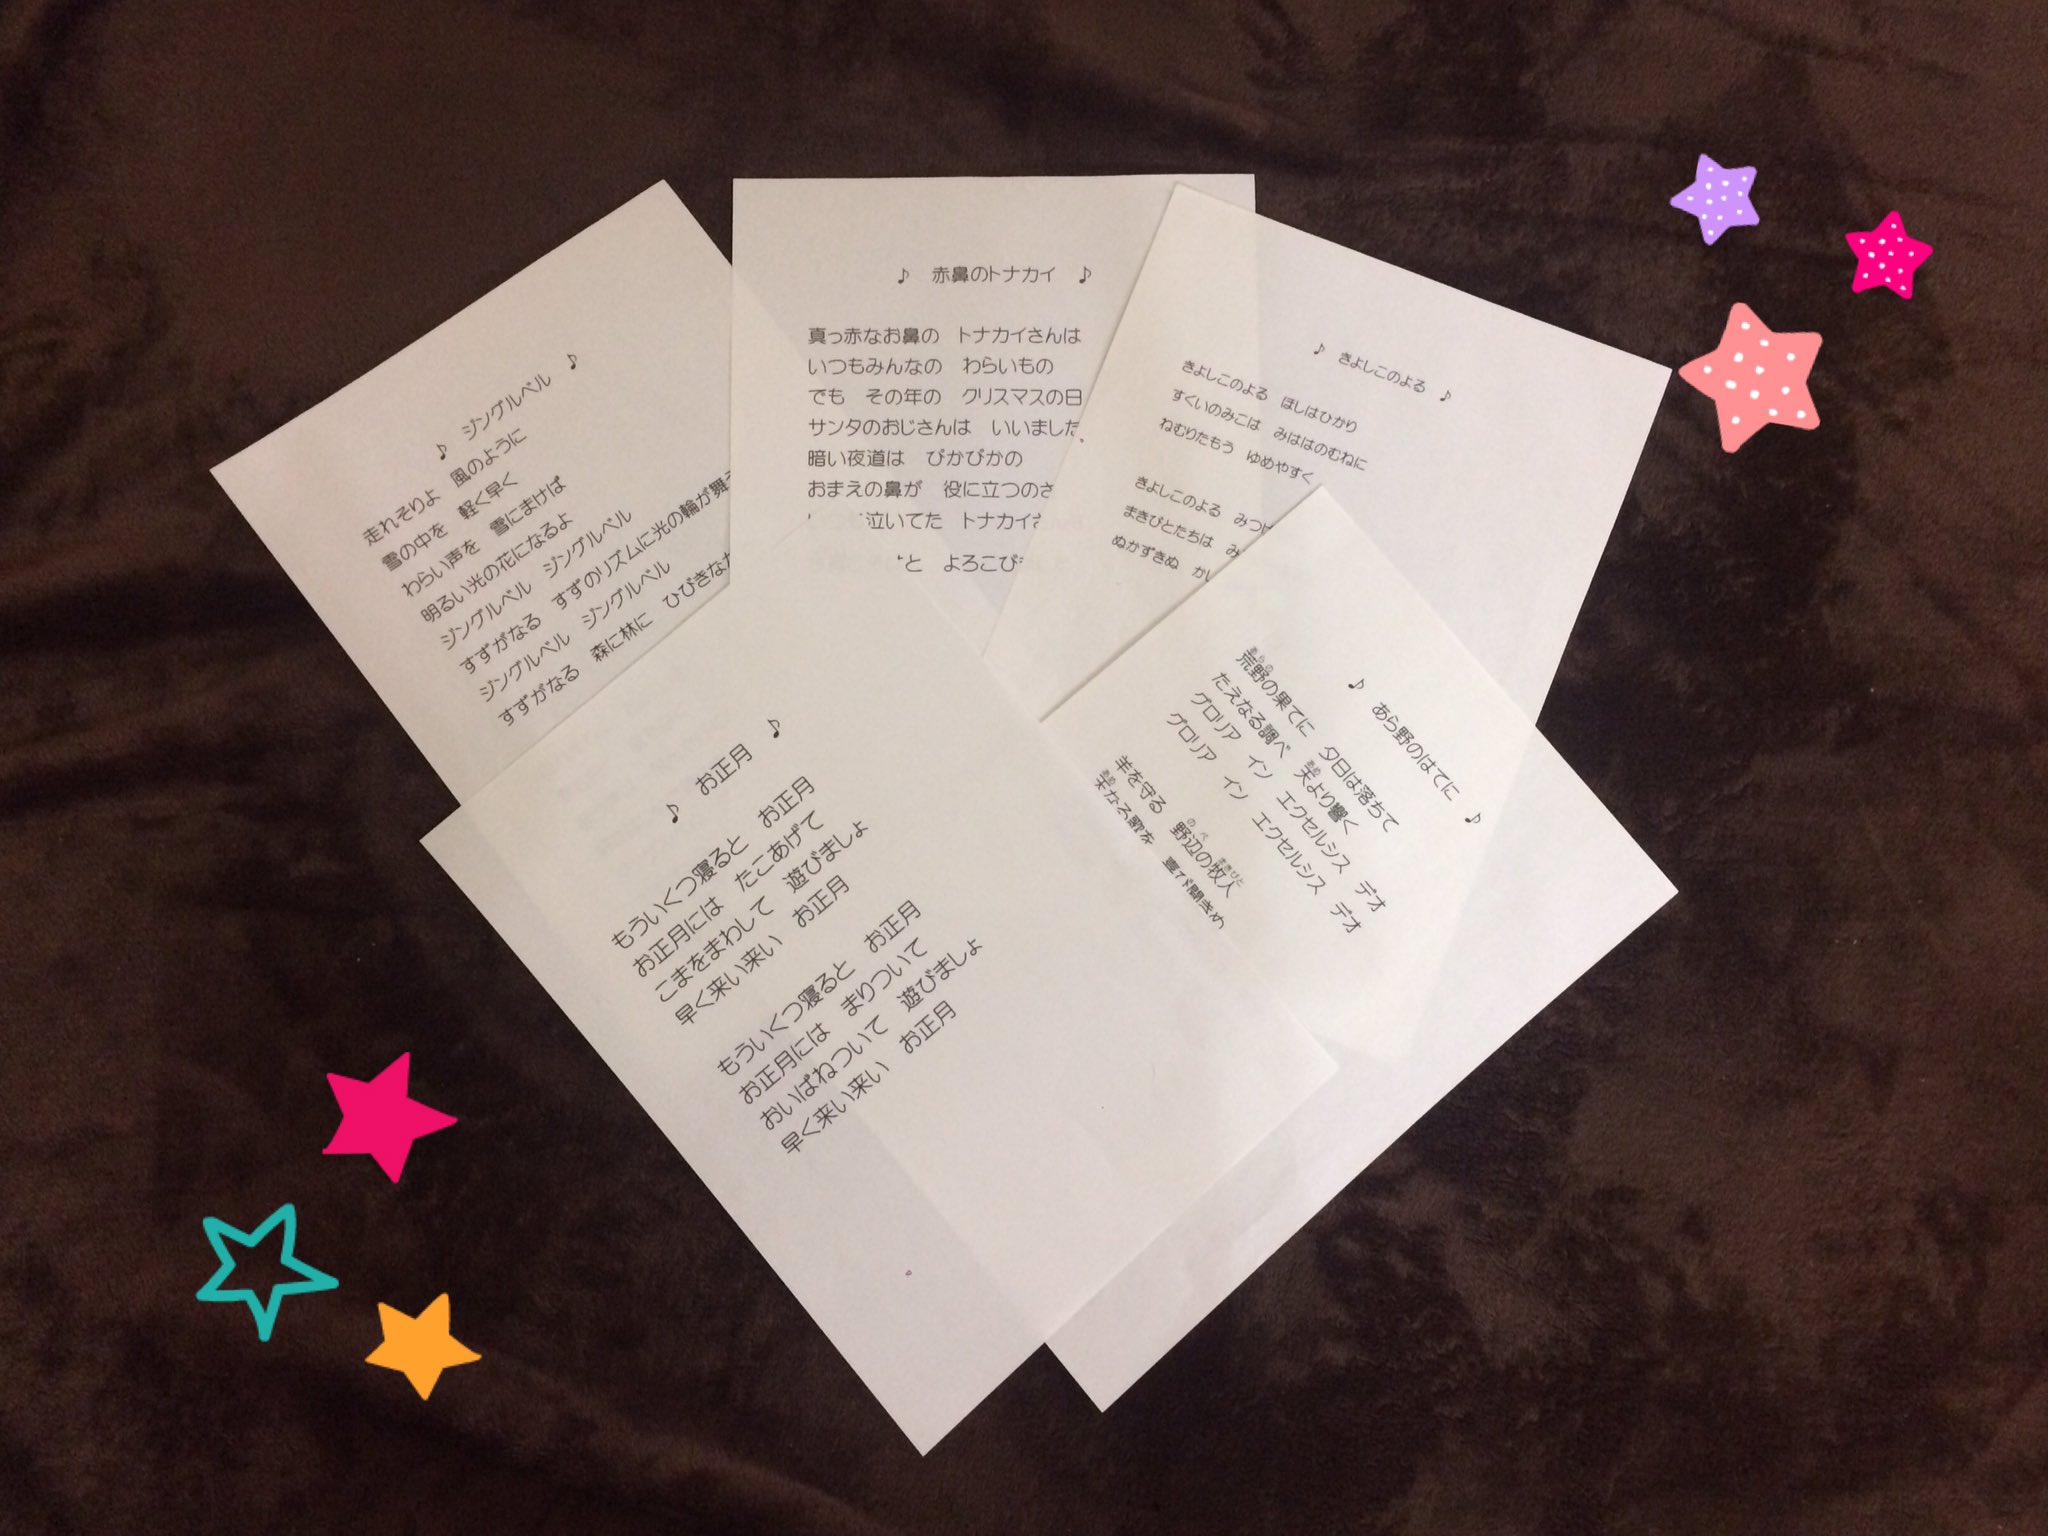 ♪ ジングルベル ♪
走れそりよ 風のように
雪の中を 軽く早く
わらい声を 雪にまけば
明るい光の花になるよ
ジングルベル ジングルベル
すずがなる すずのリズムに光の輪が舞
ジングルベル ジングルベル
すずがなる 森に林に ひびきなが
♪ 赤鼻のトナカイ ♪
真っ赤なお鼻の トナカイさんは
いつもみんなの わらいもの
でも その年の クリスマスの日
サンタのおじさんは いいました
暗い夜道は ぴかぴかの
おまえの鼻が 役に立つのさ
泣いてた トナカイさ
と よろこび
♪ きよしこのよる ♪
きよしこのよる ほしはひかり
すくいのみこは みははのむねに
ねむりたもう ゆめやすく
きよしこのよる みつ
まきびとたちは み
ぬかずきぬ か
♪ あら野のはてに ♪
荒野の果てに 夕日は落ちて
たえなる調べ 天より響く
グロリア イン エクセルシス デオ
グロリア イン エクセルシス デオ
羊を守る 野辺の牧人
天なる歌を 聞きぬ
♪ お正月 ♪
もういくつ寝ると お正月
お正月には たこあげて
こまをまわして 遊びましょ
早く来い来い お正月
もういくつ寝ると お正月
お正月には まりついて
おいばねついて 遊びましょ
早く来い来い お正月